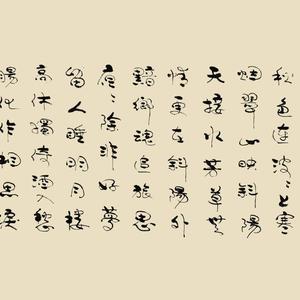 秋色連波〻上寒
烟翠山映斜陽
天接水芳草無
情更在斜陽外
黯鄉魂追旅思
夜〻除非好夢
留人睡明月樓
高休獨倚酒入愁
腸化作相思淚